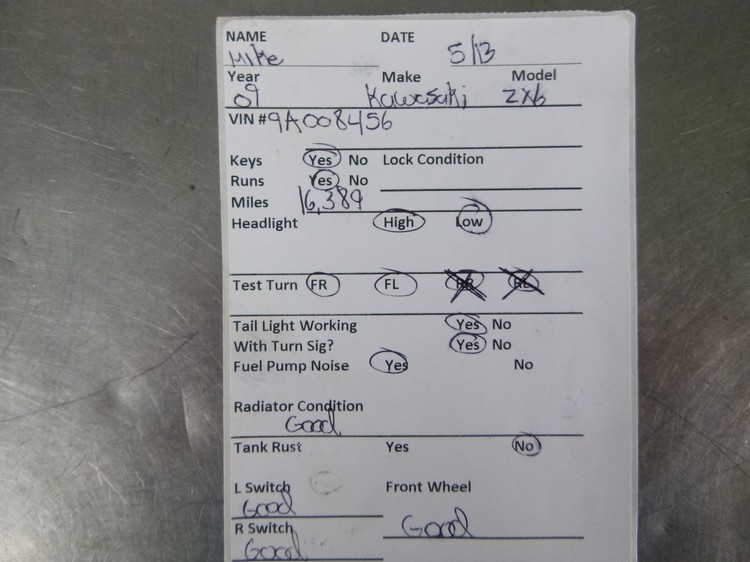 NAME DATE
Mike 5/13
Year Make Model
09 Kawasaki ZX6
VIN # 9A008456
Keys Yes No Lock Condition
Runs Yes No
Miles 16,389
Headlight High Low
Test Turn FR FL RR RL
Tail Light Working Yes No
With Turn Sig? Yes No
Fuel Pump Noise Yes No
Radiator Condition
Good
Tank Rust Yes No
L Switch Front Wheel
Good
R Switch Good
Good